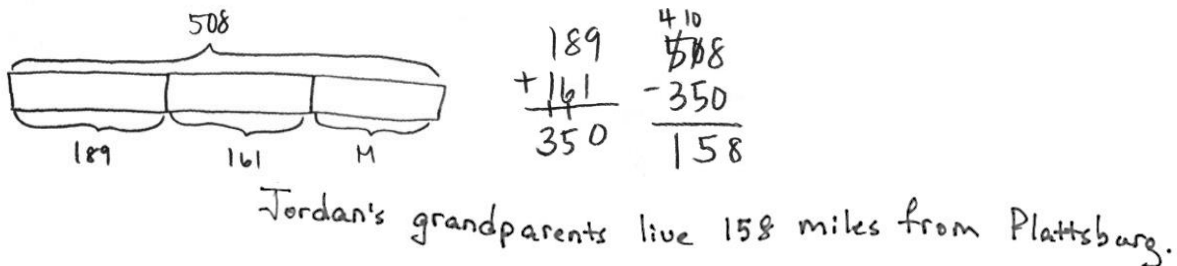 508
189 161 M
189
+161
11
350
4 10
508
-350
158
Jordan's grandparents live 158 miles from Plattsburg.